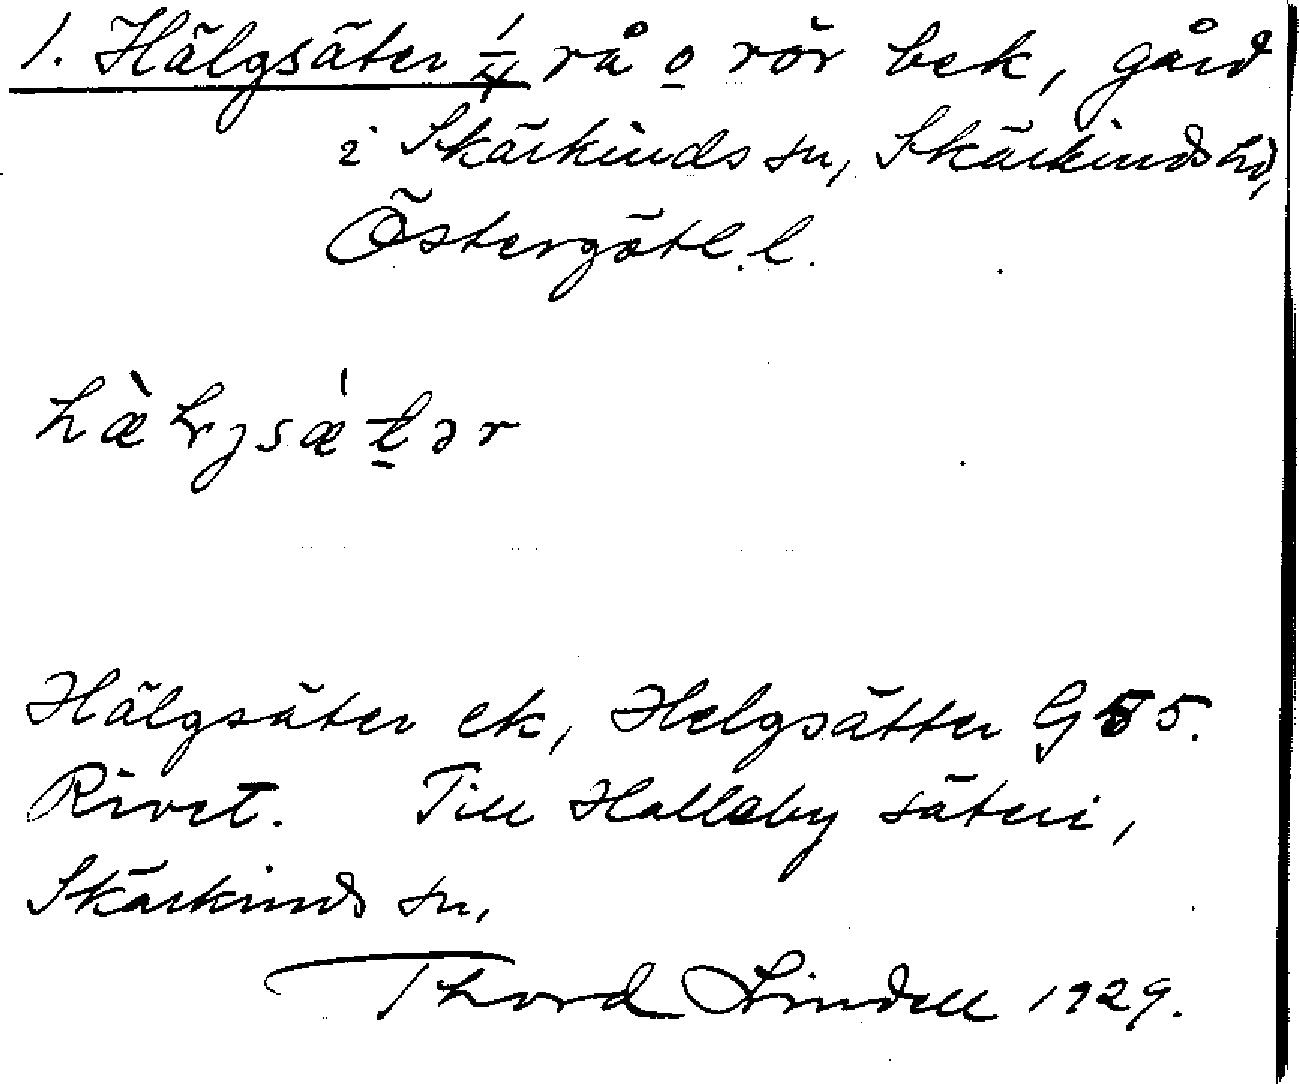 1. Hälgsäter 1/4 rå o rör bek, gård
i Skärkinds sn, Skärkinds hd,
Östergötl. l.
Hälgsäter ek, Helgsätter G 55.
Rivet. Till Halleby säteri,
Skärkinds sn.
Thord Lindell 1929.